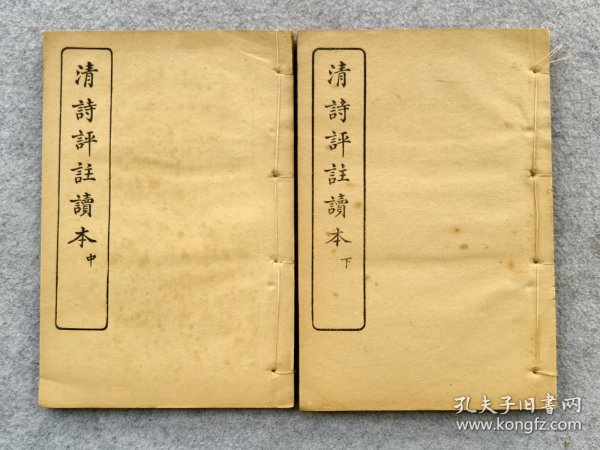 清詩評註讀本中
清詩評註讀本下
孔夫子旧書网
www.kongfz.com